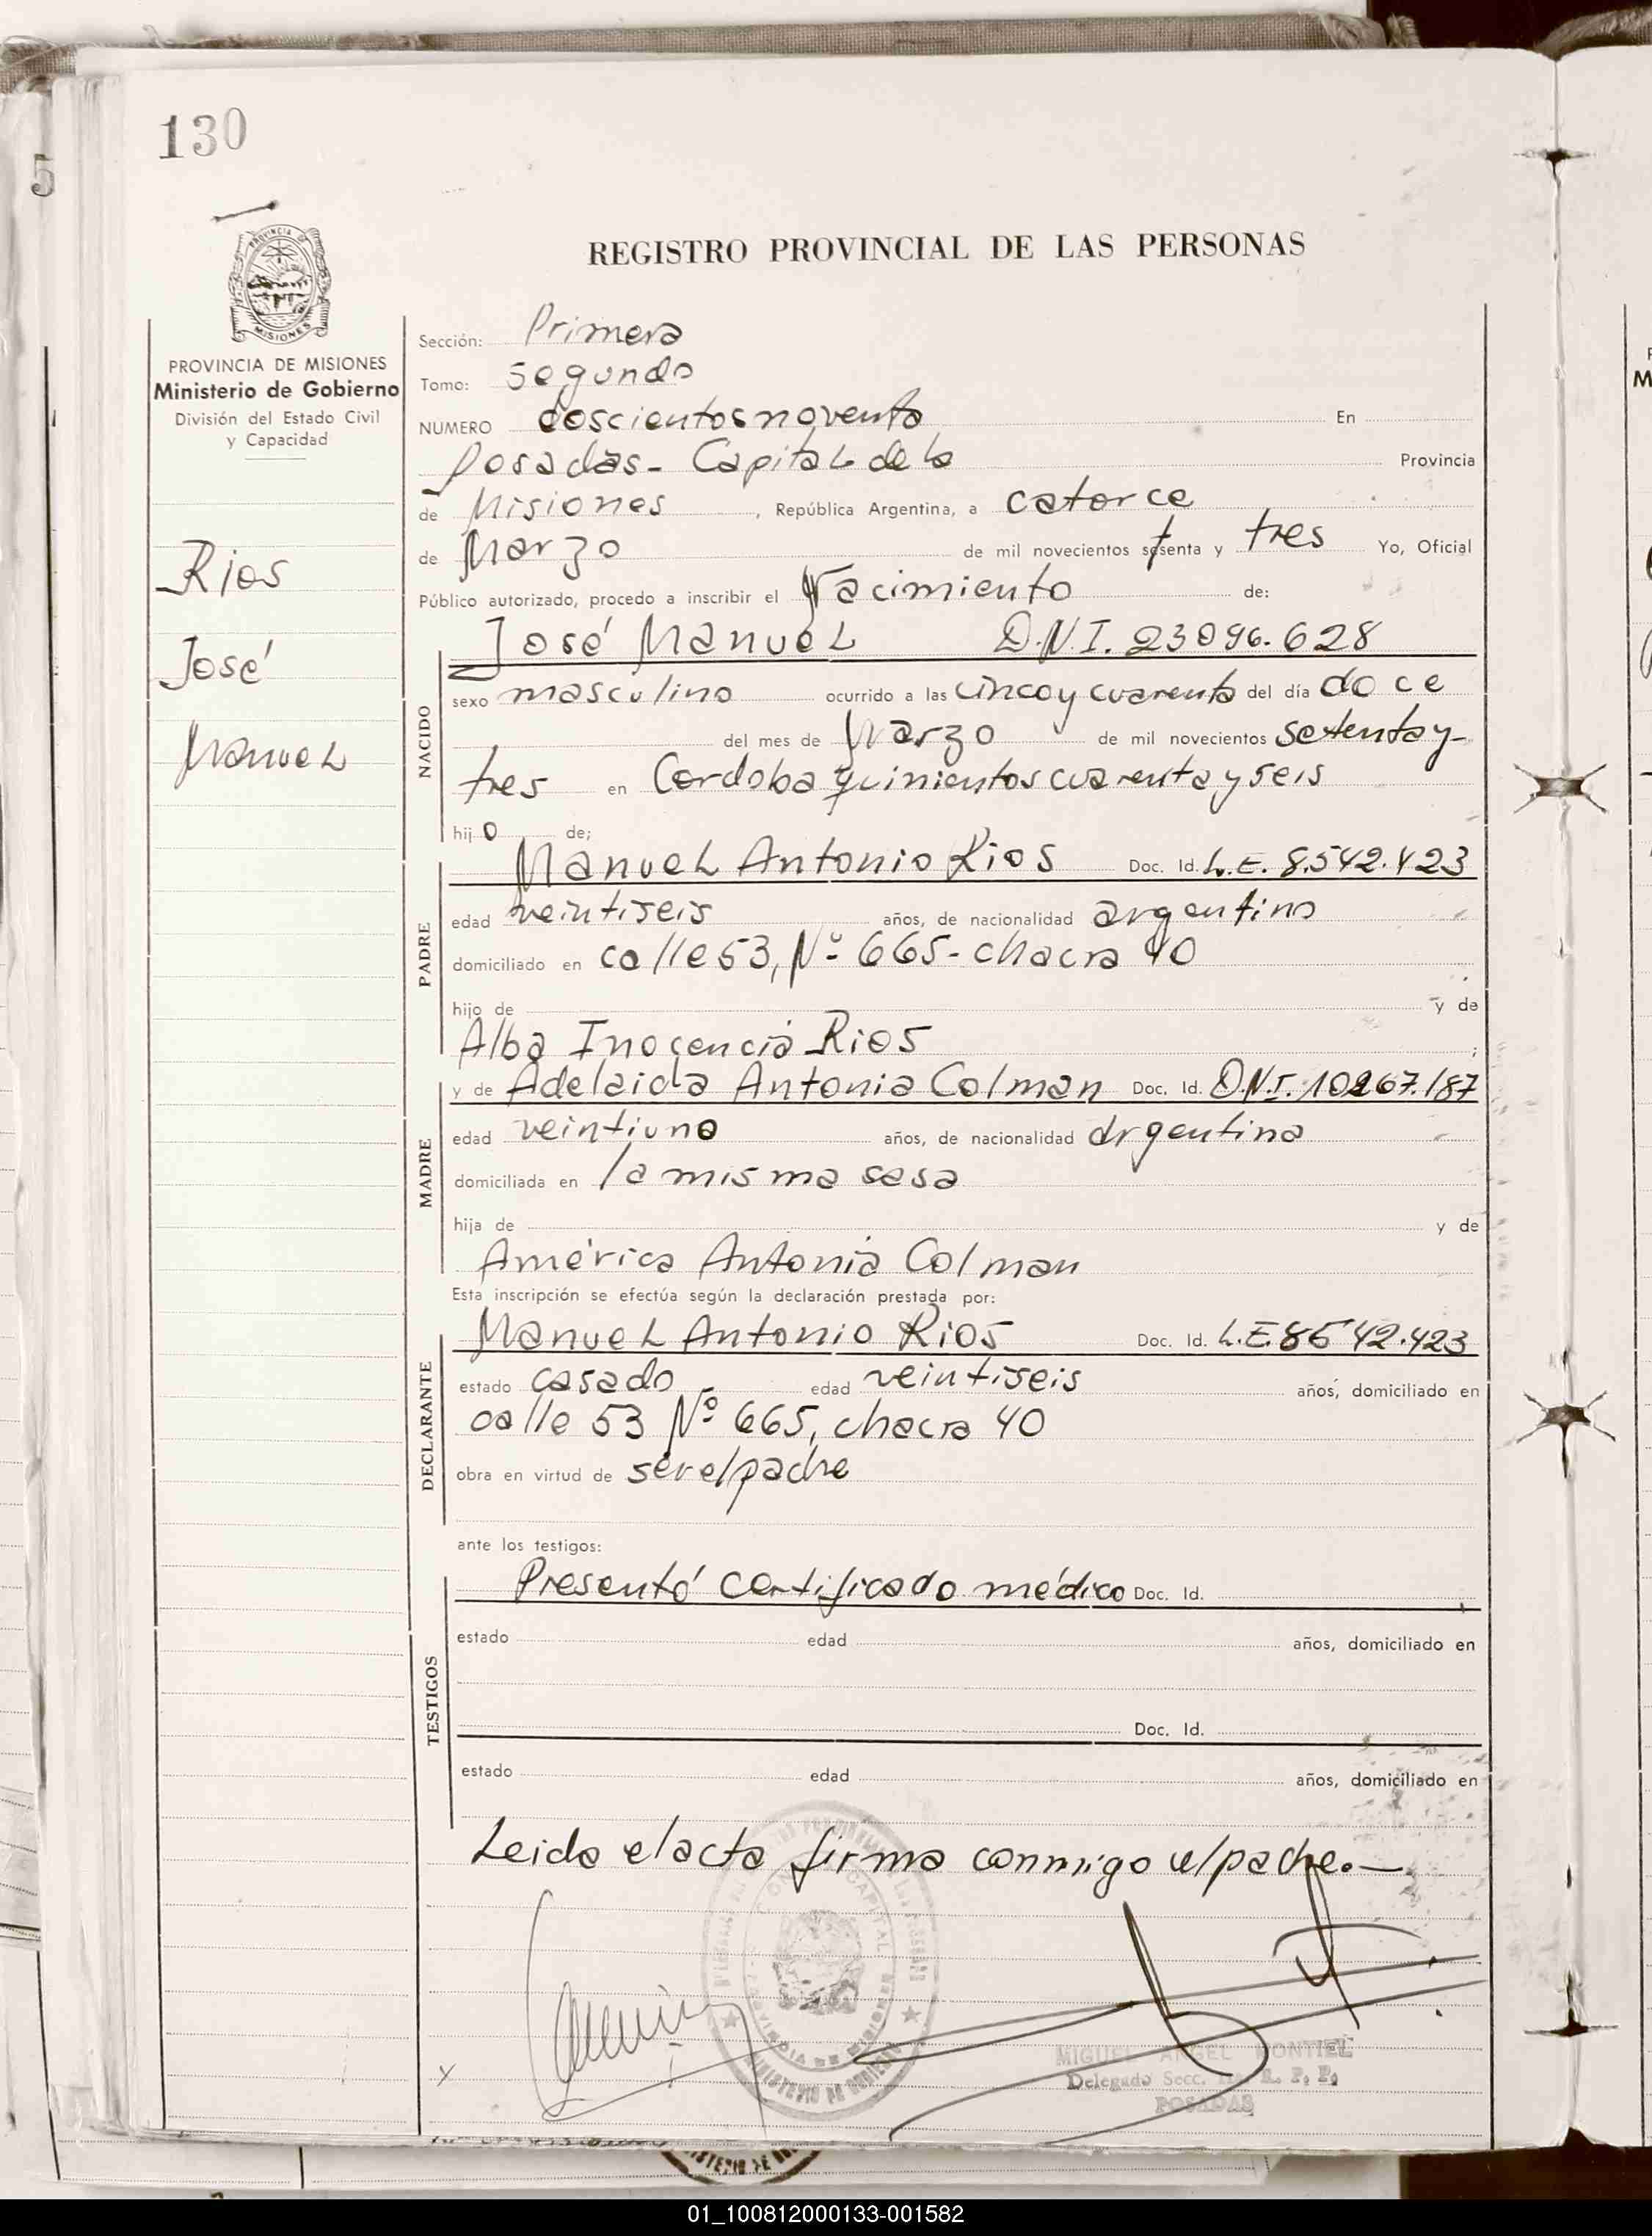 130
5
REGISTRO PROVINCIAL DE LAS PERSONAS
PROVINCIA DE MISIONES
Ministerio de Gobierno
División del Estado Civil
y Capacidad
Rios
José
Manuel
Sección: Primera
Tomo: Segundo
NUMERO doscientos noventa En
Posadas - Capital de la Provincia
de Misiones, República Argentina, a catorce
de Marzo de mil novecientos setenta y tres Yo, Oficial
Público autorizado, procedo a inscribir el Nacimiento de:
NACIDO
José Manuel D.N.I. 23096.628
sexo masculino ocurrido a las cinco y cuarenta del día doce
del mes de Marzo de mil novecientos setenta y-
tres en Cordoba quinientos cuarenta y seis
hijo de;
PADRE
Manuel Antonio Rios Doc. Id. L.E. 8.542.423
edad veintiseis años, de nacionalidad argentino
domiciliado en calle 53, Nº 665 - chacra 40
hijo de y de
Alba Inocencia Rios ;
MADRE
y de Adelaida Antonia Colman Doc. Id. D.N.I. 10267.187
edad veintiuno años, de nacionalidad argentina
domiciliada en la misma casa
hija de y de
América Antonia Colman
Esta inscripción se efectúa según la declaración prestada por:
DECLARANTE
Manuel Antonio Rios Doc. Id. L.E. 8542.423
estado casado edad veintiseis años, domiciliado en
calle 53 Nº 665, chacra 40
obra en virtud de ser el padre
ante los testigos:
TESTIGOS
Presentó certificado médico Doc. Id.
estado edad años, domiciliado en
Doc. Id.
estado edad años, domiciliado en
Leida el acta firma conmigo el padre.—
MIGUEL ANGEL MONTIEL
Delegado Secc. R. P. P.
POSADAS
01_100812000133-001582